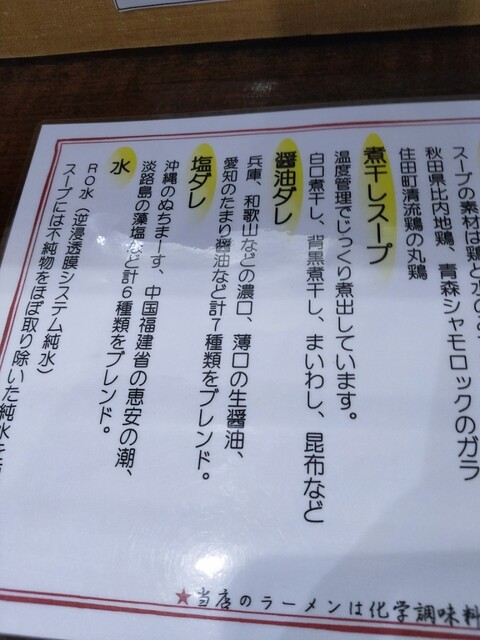 スープの素材は鶏と水のみ
秋田県比内地鶏、青森シャモロックのガラ
住田町清流鶏の丸鶏
煮干しスープ
温度管理でじっくり煮出しています。
白口煮干し、背黒煮干し、まいわし、昆布など
醤油ダレ
兵庫、和歌山などの濃口、薄口の生醤油、
愛知のたまり醤油など計7種類をブレンド。
塩ダレ
沖縄のぬちまーす、中国福建省の恵安の潮、
淡路島の藻塩など計6種類をブレンド。
水
RO水（逆浸透膜システム純水）
スープには不純物をほぼ取り除いた純水を
★当店のラーメンは化学調味料